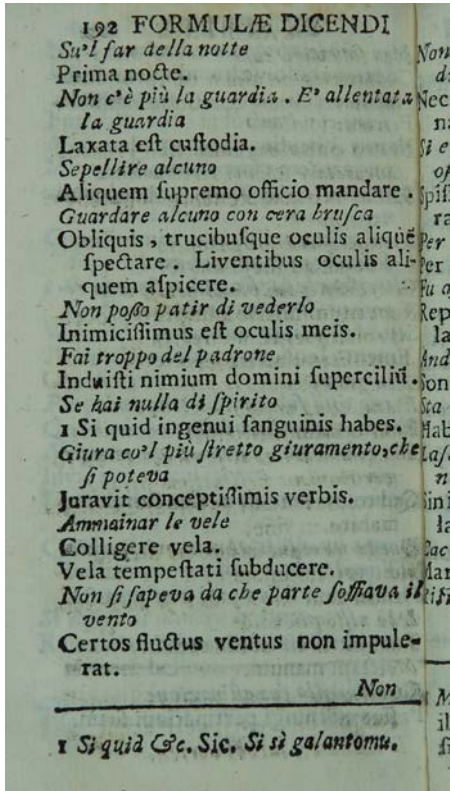 192 FORMULÆ DICENDI
Su'l far della notte
Prima nocte.
Non c'è più la guardia . E' allentata
la guardia
Laxata eſt cuſtodia.
Sepellire alcuno
Aliquem ſupremo officio mandare .
Guardare alcuno con cera bruſca
Obliquis , trucibuſque oculis aliquē
ſpectare . Liventibus oculis ali-
quem aſpicere.
Non poſſo patir di vederlo
Inimiciſſimus eſt oculis meis.
Fai troppo del padrone
Induiſti nimium domini ſuperciliū.
Se hai nulla di ſpirito
1 Si quid ingenui ſanguinis habes.
Giura co'l più ſtretto giuramento, che
ſi poteva
Juravit conceptiſſimis verbis.
Ammainar le vele
Colligere vela.
Vela tempeſtati ſubducere.
Non ſi ſapeva da che parte ſoffiava il
vento
Certos fluctus ventus non impule-
rat.
Non
1 Si quid &c. Sic. Si sì galantomu.